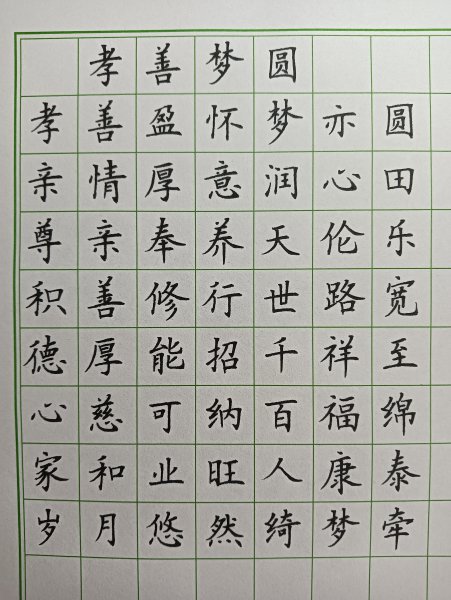 孝善梦圆
孝善盈怀梦亦圆
亲情厚意润心田
尊亲奉养天伦乐
积善修行世路宽
德厚能招千祥至
心慈可纳百福绵
家和业旺人康泰
岁月悠然绮梦牵